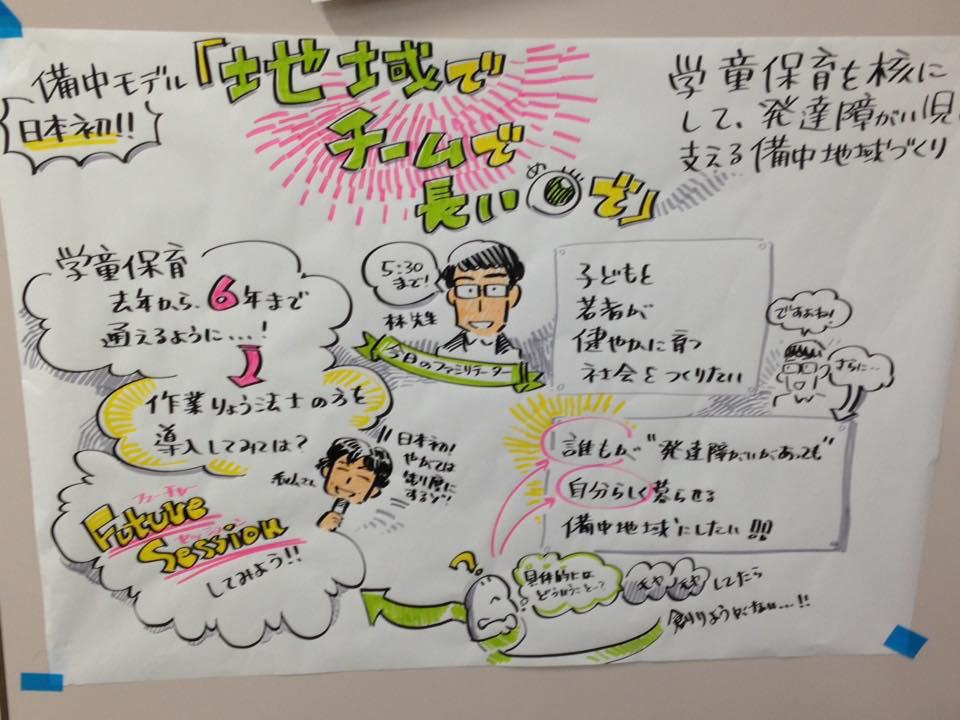 備中モデル
日本初!!
「地域で
チームで
長い目で」
め
学童保育を核に
して、発達障がい児
支える備中地域づくり
学童保育
去年から、6年まで
通えるように…!
5:30
まで!
林先生
今日のファシリテーター
子どもと
若者が
健やかに育つ
社会をつくりたい
ですよね!
さらに…
作業りょう法士の方を
導入してみては?
日本初!
やがては
にするゾ!
誰もが "発達障がいがあっても"
自分らしく暮らせる
備中地域にしたい!!!
フューチャー
Future
セッション
Session
してみよう!!
?
具体的には
どういうこと…?
モヤモヤしてたら
創りようがない…!!